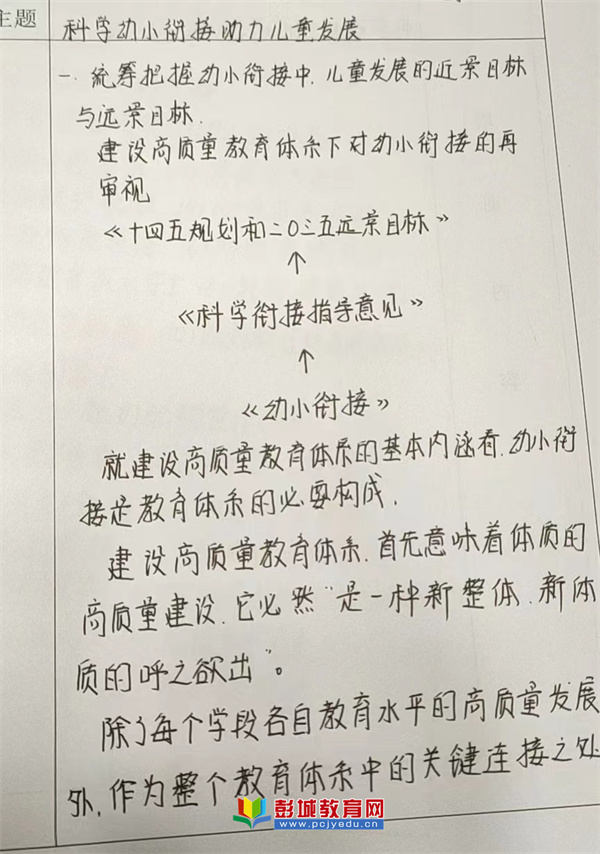 主题
科学幼小衔接助力儿童发展
一.统筹把握幼小衔接中,儿童发展的近景目标
与远景目标.
建设高质量教育体系下对幼小衔接的再
审视
《十四五规划和二〇三五远景目标》
↑
《科学衔接指导意见》
↑
《幼小衔接》
就建设高质量教育体系的基本内涵看,幼小衔
接是教育体系的必要构成,
建设高质量教育体系,首先意味着体质的
高质量建设,它必然"是一种新整体、新体
质的呼之欲出"。
除了每个学段各自教育水平的高质量发展
外,作为整个教育体系中的关键连接之处
彭城教育网
www.pcjyedu.cn